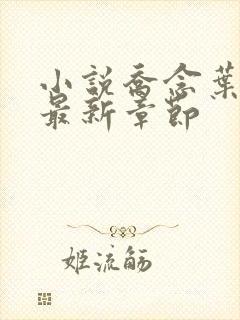 小説喬念葉
最新章節
姬流觞